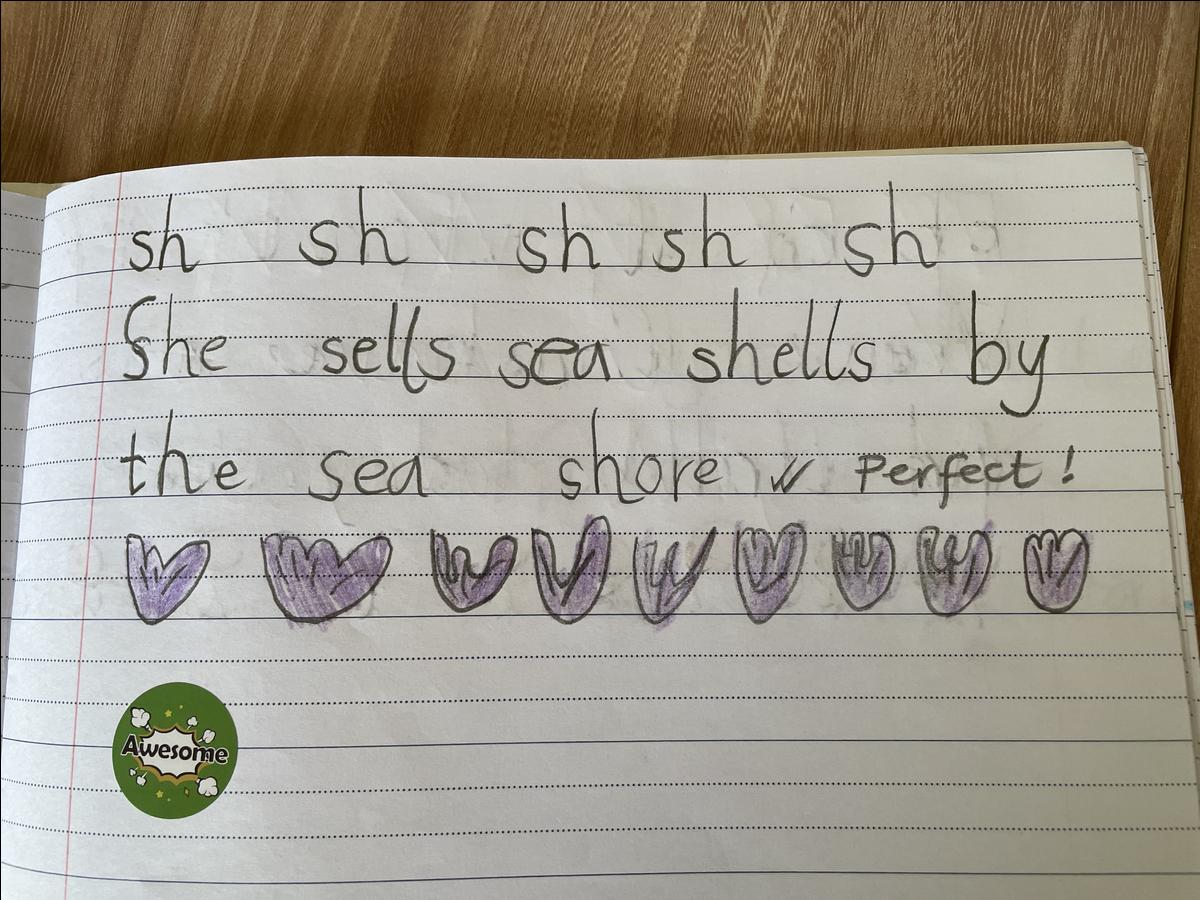 sh sh sh sh sh
She sells sea shells by
the sea shore ✓✓ Perfect!
Awesome